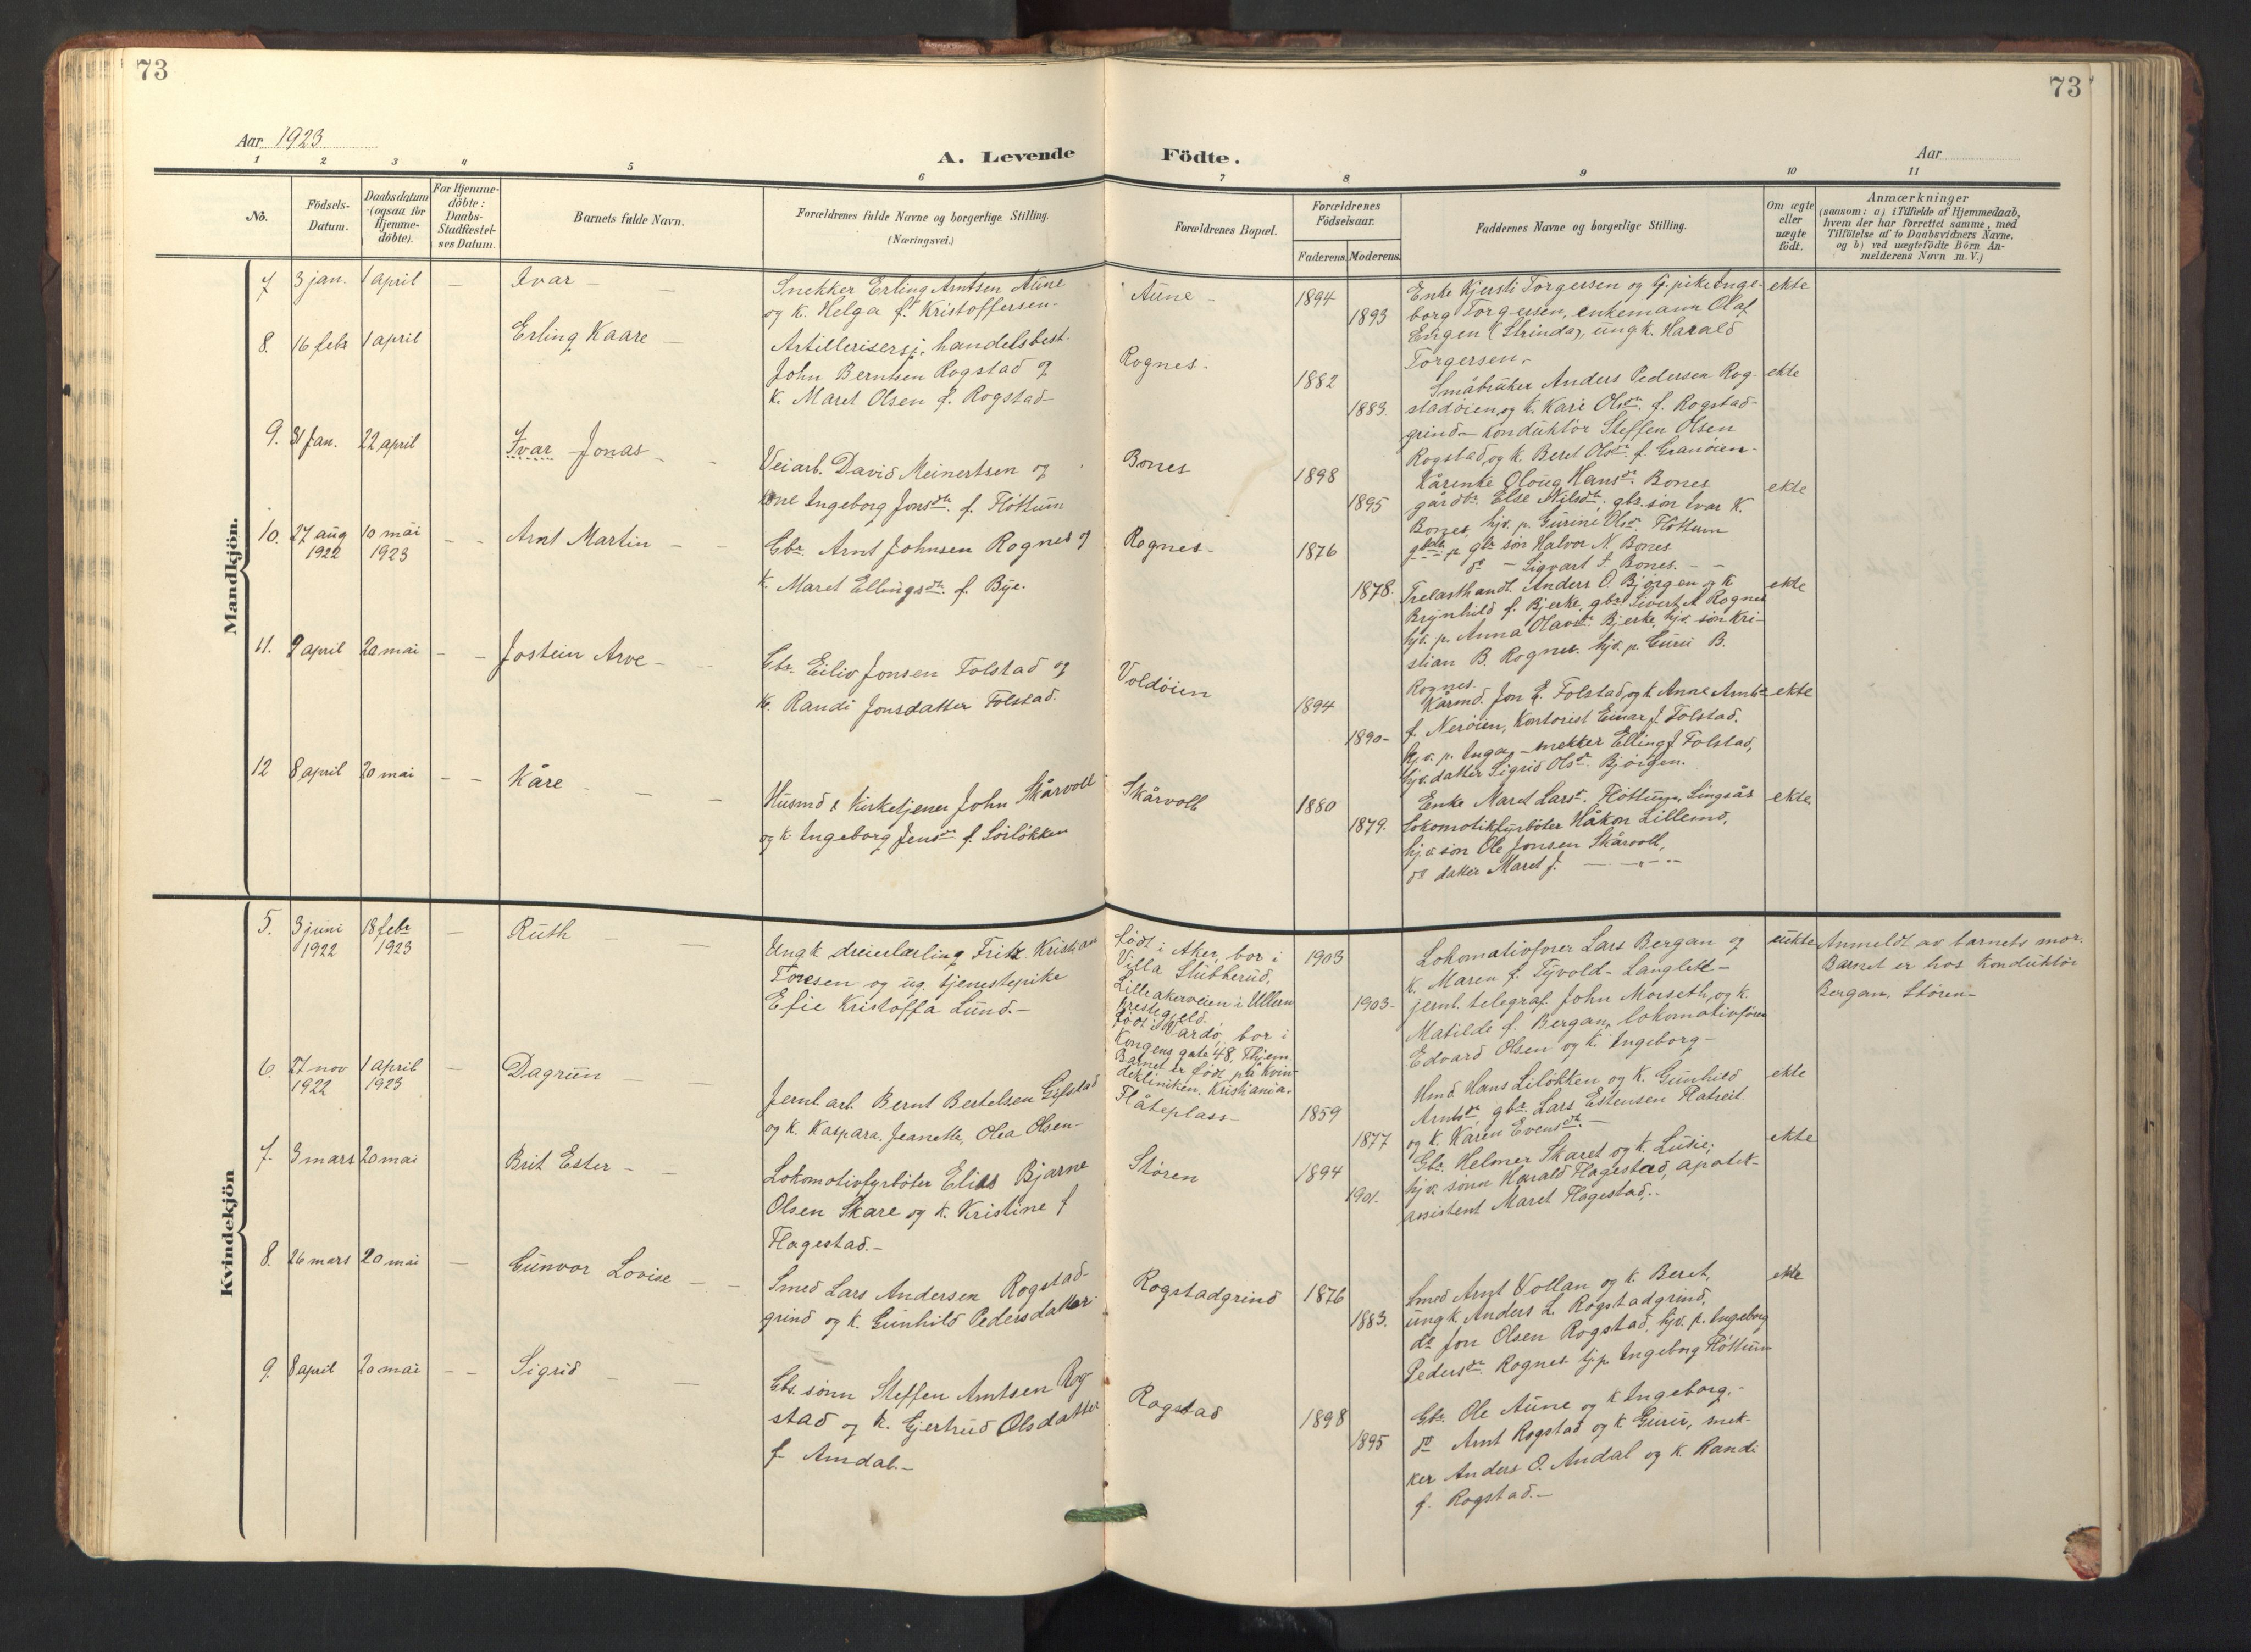 73
73
Aar 1923
A. Levende Födte.
Aar
1 2 3 4 5 6 7 8 9 10 11
No.
Födsels-
Datum.
Daabsdatum
(ogsaa for
Hjemme-
döbte).
For Hjemme-
döbte:
Daabs-
Stadfestel-
ses Datum.
Barnets fulde Navn.
Forældrenes fulde Navne og borgerlige Stilling.
(Næringsvei.)
Forældrenes Bopæl.
Forældrenes
Födselsaar.
Faderens. Moderens.
Faddernes Navne og borgerlige Stilling.
Om ægte
eller
uægte
födt.
Anmærkninger
(saasom: a) i Tilfælde af Hjemmedaab,
hvem der har forrettet samme, med
Tilföielse af to Daabsvidners Navne,
og b) ved uægtefödte Börn An-
melderens Navn m. V.)
Mandkjön.
7 3 jan. 1 april – Ivar –
Snekker Erling Arntsen Aune
og k. Helga f. Kristoffersen-
Aune –
1894
1893
Enke Kjersti Torgersen og G. pike Inge-
borg Torgersen, enkemann Olaf
Engen (Strinda), ungk. Harald
Torgersen.-
ekte
8. 16 febr 1 april Erling Kaare –
Artillerisersj. handelsbest.
John Berntsen Rogstad og
k. Maret Olsen f. Rogstad-
Rognes.
1882
1883.
Småbruker Anders Pedersen Rog-
stadöien og k. Kari Olsdr. f. Rogstad-
grind – Konduktör Steffen Olsen
Rogstad, og k. Beret Olsdr. f. Granöien-
ekte
9. 31 jan. 22 april Ivar Jonas –
Veiarb. David Meinertsen og
kone Ingeborg Jonsdtr. f. Flöttum
Bones
1898
1895
Kårenke Oloug Hansdr. Bones
gårdbr. Else Nilsdtr. gbr. sön Ivar K.
Bones, hjv. p. Gurine Olsdr. Flöttum
p. gbr sön Halvor N. Bones
do – Sigvart J. Bones. – –
ekte
10. 27 aug 1922 10 mai 1923 – – Arnt Martin –
Gbr. Arnt Johnsen Rognes og
k. Maret Ellingsdtr. f. Bye.
Rognes-
1876
1878.
Trelasthandl. Anders O. Bjørgen og k.
Brynhild f. Bjerke, gbr. Sivert A. Rognes
hjv. p. Anna Olavsdtr. Bjerke, hjv. sön Kri-
stian B. Rognes. hjv. p. Guri B.
Rognes.
ekte
11. 2 april 20 mai – – Jostein Arve –
Gbr. Eiliv Jonsen Folstad og
k. Randi Jonsdatter Folstad.
Voldöien
1894
1890-
Kårmd. Jon E. Folstad, og k. Anne Arntsdr
f. Neröien, Kontorist Einar J. Folstad,
hjv. p. Inga – snekker Elling J. Folstad,
hjv. datter Sigrid Olsdr. Bjørgen.
ekte
12 8 april 20 mai – – Kåre –
Husmd & Kirketjener John Skårvoll
og k. Ingeborg Jensdr f. Sörlökken
Skårvoll
1880
1879.
Enke Maret Larsdr. Flöttum, Singsås
Lokomotikfyrböter Håkon Lillemo,
hjv. sön Ole Jonsen Skårvoll,
do datter Maret J. – – –
ekte
Kvindekjön
5. 3 juni 1922 18 febr 1923 – Ruth –
Ungk dreierlærling Fritz Kristian
Toresen og ug. tjenestepike
Efie Kristoffa Lund.-
Födt i Aker, bor i
Villa Stubberud,
Lilleakerveien i Ullern
prestegjeld.
Födt i Vardö, bor i
Kongens gate 48, Thjem.
Barnet er födt på Kvin-
dekliniken. Kristiania.
1903
1903-
Lokomotivförer Lars Bergan og
k. Maren f. Tyvold- Langlete-
jernb. telegraf. John Morseth, og k.
Matilde f. Bergan, lokomotivförer
Edvard Olsen og k. Ingeborg-
uekte
Anmeldt av barnets mor.
Barnet er hos Konduktör
Bergan, Stören-
6. 27 nov 1922 1 april 1923 – Dagrun –
Jernb. arb. Bernt Bertelsen Gifstad
og k. Kaspara, Jeanette, Olea Olsen-
Flåteplass-
1859
1877
Hmd. Hans Lilökken og k. Gunhild
Arntsdr, gbr. Lars Estensen Flatreit
og k. Karen Evensdtr. –
ekte
7. 3 mars 20 mai Brit Ester –
Lokomotivfyrböter Elias Bjarne
Olsen Skare og k. Kristine f
Hagestad.-
Stören
1894
1901.
Gbr. Helmer Skaret og k. Lusie;
hjv. sönn Harald Hagestad, apotek-
assistent Maret Hagestad,..
ekte
8. 26 mars 20 mai – Gunvor Lovise – –
Smed Lars Andersen Rogstad-
grind og k. Gunhild Pedersdatter
Rogstadgrind
1876
1883.
Smed Arnt Vollan og k. Beret,
ungk. Anders L. Rogstadgrind,
do Jon Olsen Rogstad, hjv. p. Ingeborg
Pedersdr. Rognes tj.p. Ingeborg Flöttum
ekte
9. 8 april 20 mai – – Sigrid –
Gbr. sönn Steffen Arntsen Rog-
stad og k. Gjertrud Olsdatter
f. Amdal.-
Rogstad
1898
1895
Gbr. Ole Aune og k Ingeborg,-
do Arnt Rogstad og k Guru, snek-
ker Anders O. Amdal og k. Randi
f. Rogstad.-